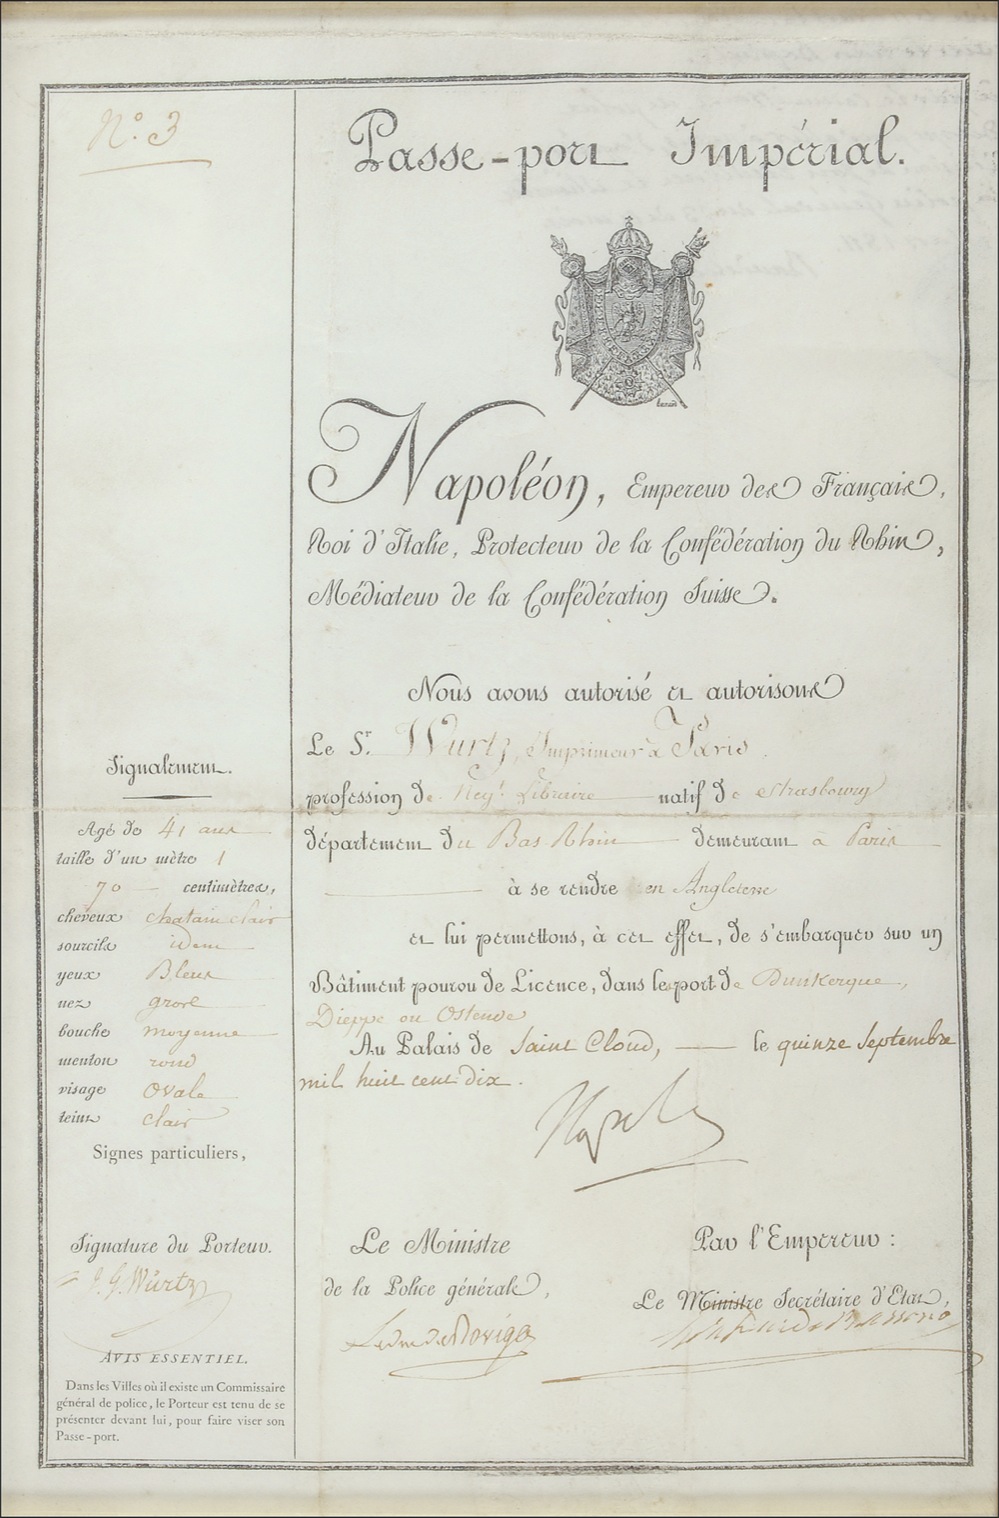 N.o 3
Passe-port Impérial.
Napoléon, Empereur des Français,
Roi d'Italie, Protecteur de la Confédération du Rhin,
Médiateur de la Confédération Suisse.
Nous avons autorisé et autorisons
Le Sr. Wurtz, Imprimeur à Paris
profession de Negt. Libraire natif de Strasbourg
département du Bas Rhin demeurant à Paris
à se rendre en Angleterre
et lui permettons, à cet effet, de s'embarquer sur un
Bâtiment pourvu de Licence, dans le port de Dunkerque,
Dieppe ou Ostende
Au Palais de Saint Cloud, le quinze Septembre
mil huit cent dix.
Signalement.
Agé de 41 ans
taille d'un mètre 1
70 centimètres,
cheveux chatain clair
sourcils idem
yeux Bleux
nez grose
bouche moyenne
menton rond
visage ovale
teint clair
Signes particuliers,
Signature du Porteur.
J. G. Würtz
AVIS ESSENTIEL.
Dans les Villes où il existe un Commissaire
général de police, le Porteur est tenu de se
présenter devant lui, pour faire viser son
Passe-port.
Le Ministre
de la Police générale,
Le duc de Rovigo
Par l'Empereur :
Le Ministre Secrétaire d'Etat,